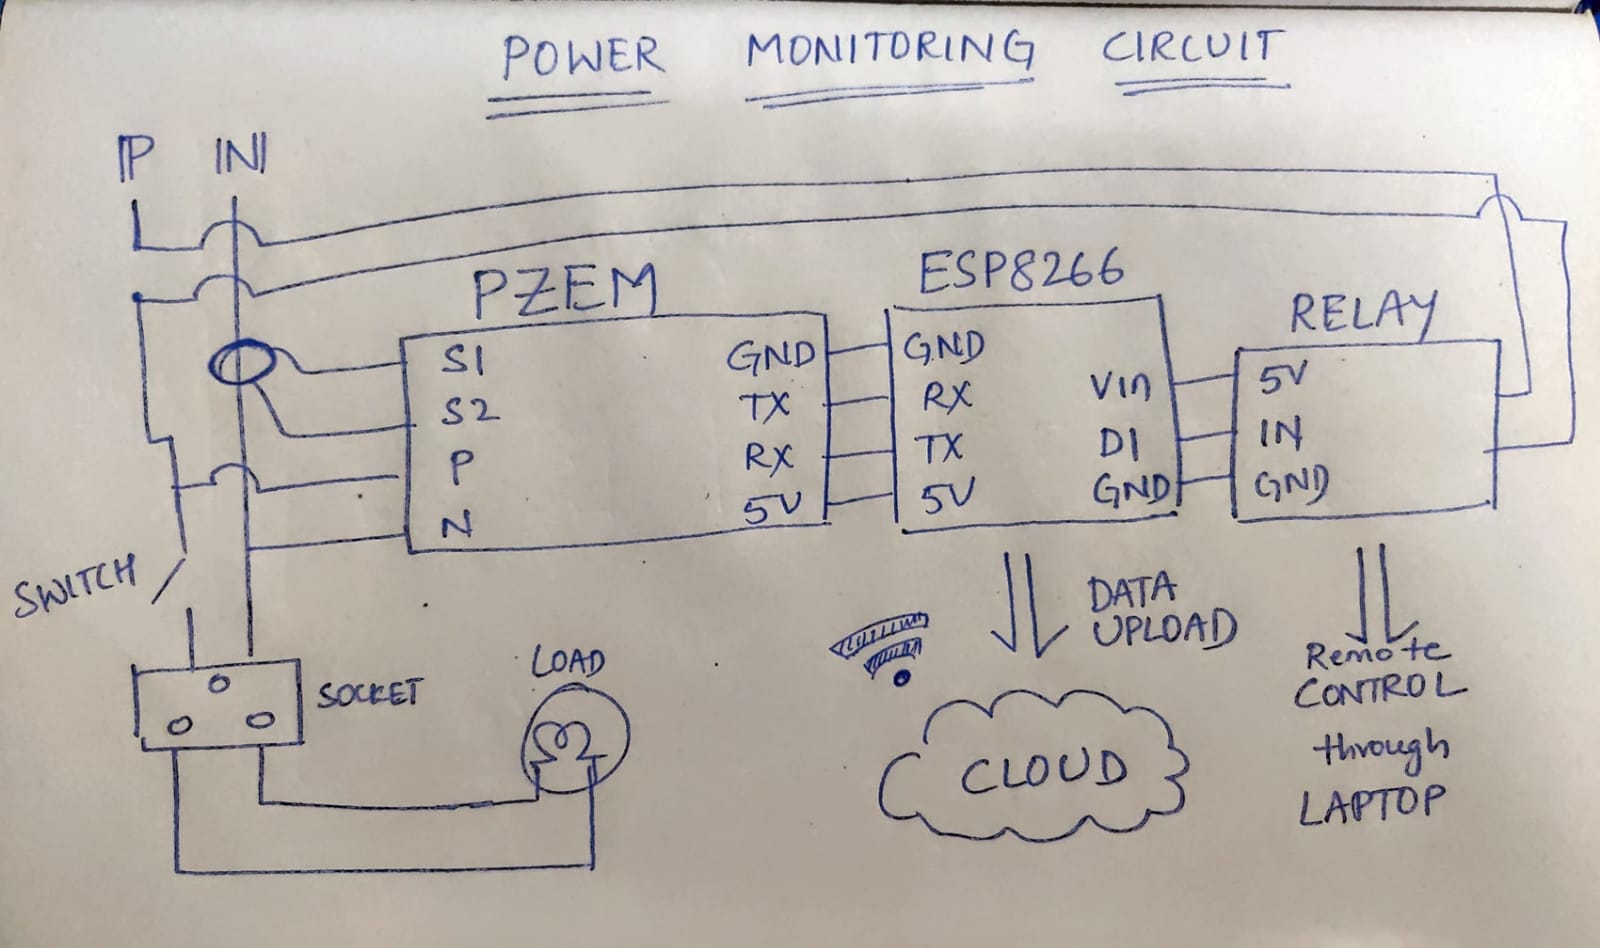 POWER MONITORING CIRCUIT
P N
PZEM
S1
S2
P
N
GND
TX
RX
5V
ESP8266
GND
RX
TX
5V
Vin
D1
GND
RELAY
5V
IN
GND
SWITCH
SOCKET
LOAD
DATA
UPLOAD
CLOUD
Remote
CONTROL
through
LAPTOP